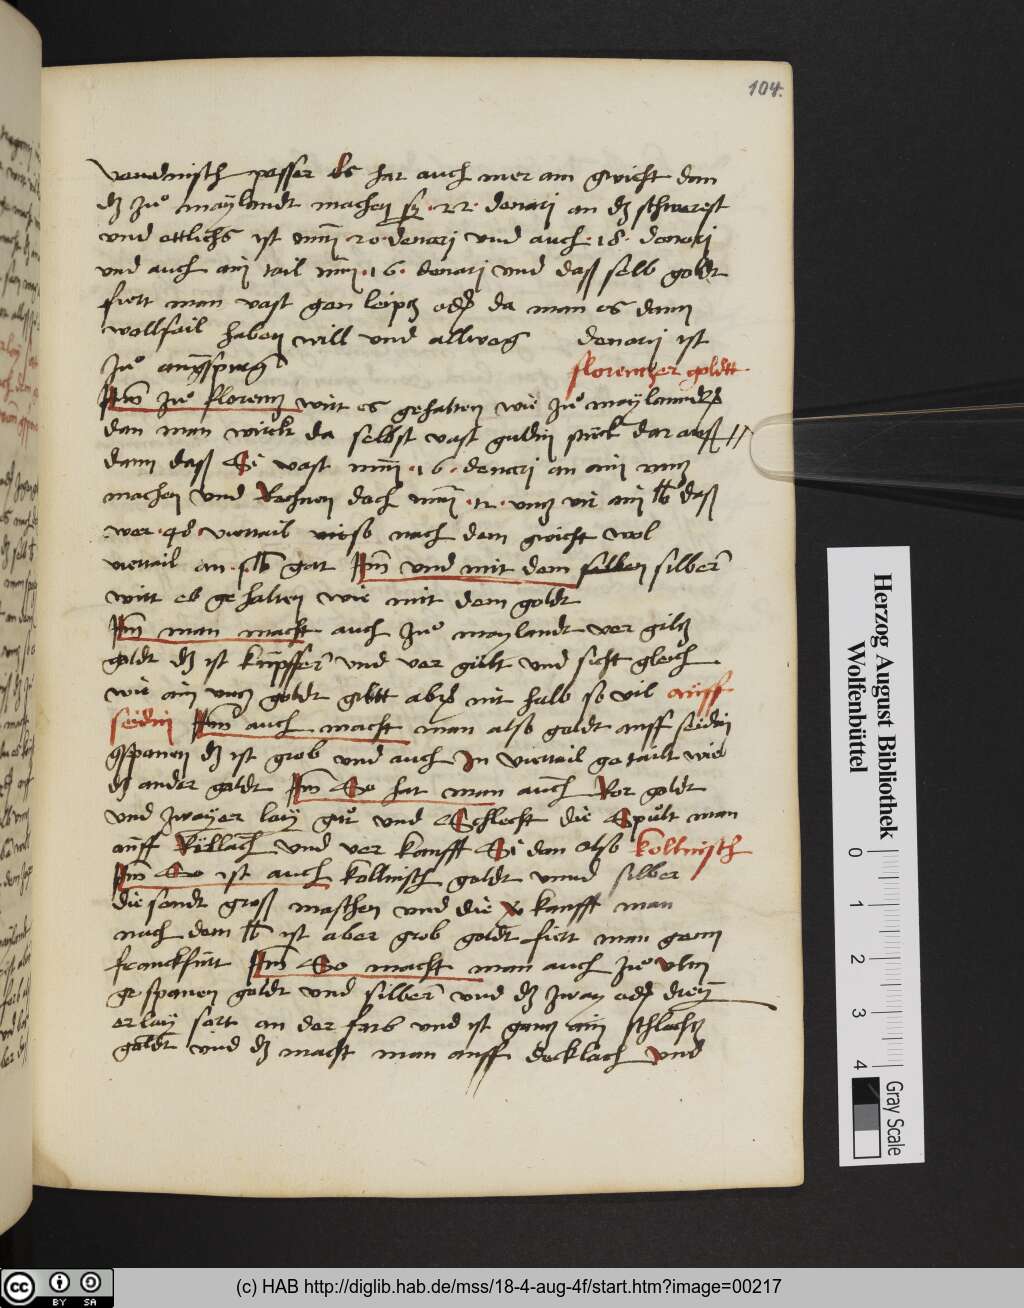 104.
venedinisch pesser Es hat auch mer am gwicht dan
dz zuo maylandt machen sy · 22 · denari an dz schwerest
und ettlichs ist nun · 20 · denarj und auch · 18 · denarj
und auch ain tail nun · 16 · denarj und daß selb goldt
fiert man vast gen leipz oder da man es dann
wollfail haben will und allweg denarij ist
zuo augspurg
florentzer goldtt
Jtem zuo florentz wirt es gehalten wie zuo maylanndt
dan man würckt da selbst vast guldin stück dar auß
dann daß Si vast nun · 16 · denarj an ain untz
machen und Rechnen doch nun · 12 · untz vir ain lb daß
wer · 48 · viertail wiso nach dem gwicht wol
viertail an · 1 lb gat Jtem und mit dem silber
wirt es gehalten wie mit dem goldt
Jtem man macht auch zuo maylandt ver gilz
goldt dz ist kupffer und ver gült und sicht gleich
wie ain untz goldt giltt aber nit halb so vil auff
seidin Jtem auch macht man also goldt auff seidin
gspanen dz ist grob und auch In viertail getailt wie
dz ander goldt Jtem So hat man auch Ror goldt
und zwayer lay guot und Schlecht die Spuolt man
auff Rörlach und ver kaufft Si dan also kollnisch
Jtem So ist auch kollnisch goldt unnd silber
die sendt groß maschen und die ver kaufft man
nach dem lb ist aber grob goldt fiert man genn
franckfurt Jtem So macht man auch zuo ulm
gespanen goldt und silber und dz zway oder dreyer
erlay sort an der farb und ist gantz ain schlechtz
goldt und dz macht man auff decklach und
Herzog August Bibliothek
Wolfenbüttel
0 1 2 3 4
Gray Scale
cc BY SA
(c) HAB http://diglib.hab.de/mss/18-4-aug-4f/start.htm?image=00217